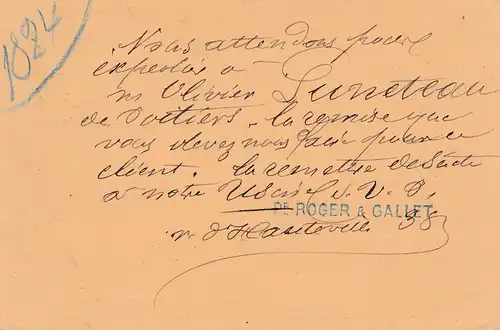 1824
Nous attendons pour
expedier a
m Olivier Luneteau
de Poitiers. la remise que
vous devez nous faire pour ce
client. la remettre de suite
a notre
Pr. ROGER & GALLET
r. d'Hauteville 38